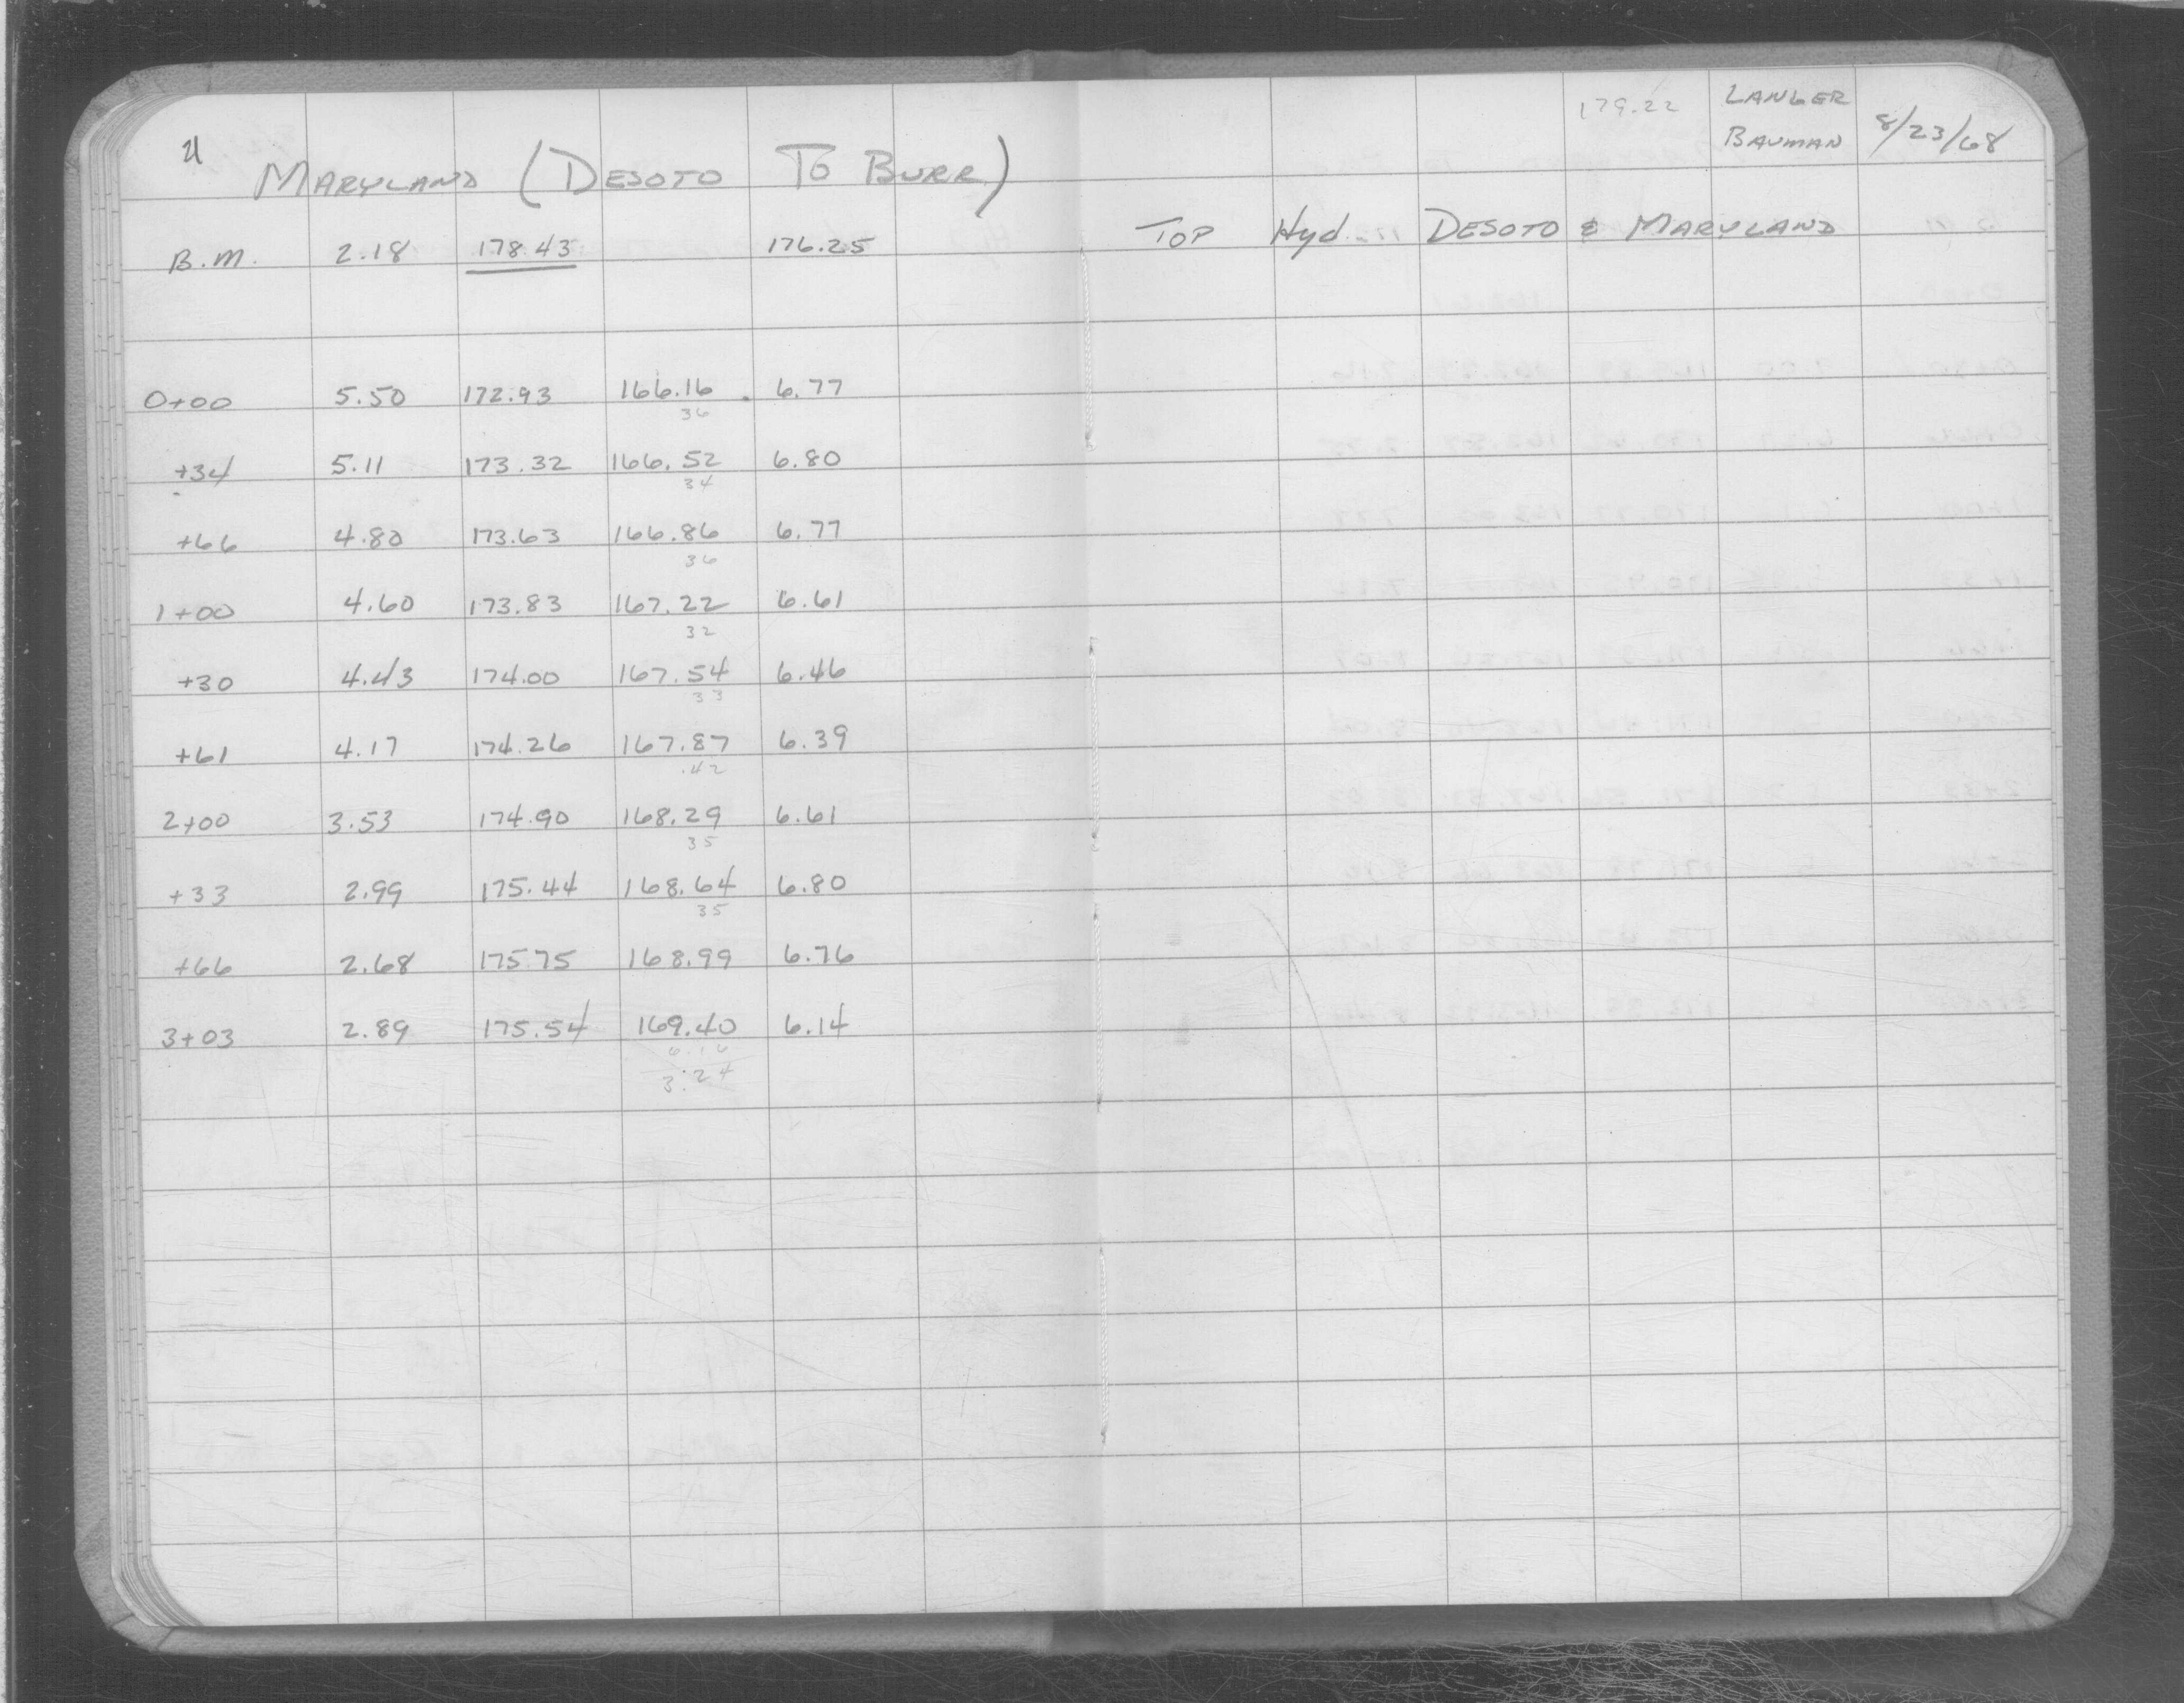 21
MARYLAND (DESOTO TO BURR)
B.M. 2.18 178.43 176.25
0+00 5.50 172.93 166.16 6.77
36
+34 5.11 173.32 166.52 6.80
34
+66 4.80 173.63 166.86 6.77
36
1+00 4.60 173.83 167.22 6.61
32
+30 4.43 174.00 167.54 6.46
33
+61 4.17 174.26 167.87 6.39
.42
2+00 3.53 174.90 168.29 6.61
35
+33 2.99 175.44 168.64 6.80
35
+66 2.68 175.75 168.99 6.76
3+03 2.89 175.54 169.40 6.14
3.24
179.22 LANGER
BAUMAN 8/23/68
TOP Hyd. DESOTO & MARYLAND